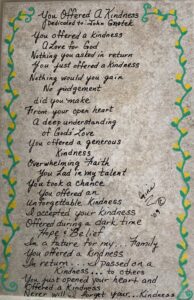 You Offered A Kindness
Dedicated to John Gnotek
You offered a kindness
A Love for God
Nothing you asked in return
You just offered a kindness
Nothing would you gain
No judgement
did you make
From your open heart
A deep understanding
of Gods' Love
You offered a generous
Kindness
Overwhelming Faith
You Had in my talent
You took a chance
You offered an
Unforgettable Kindness
I accepted your kindness
Offered during a dark time
Hope & Belief
In a future for my... Family
You offered a kindness
In return... I passed on a
Kindness... to others
You just opened your heart and
offered a Kindness
Never will I forget your... Kindness